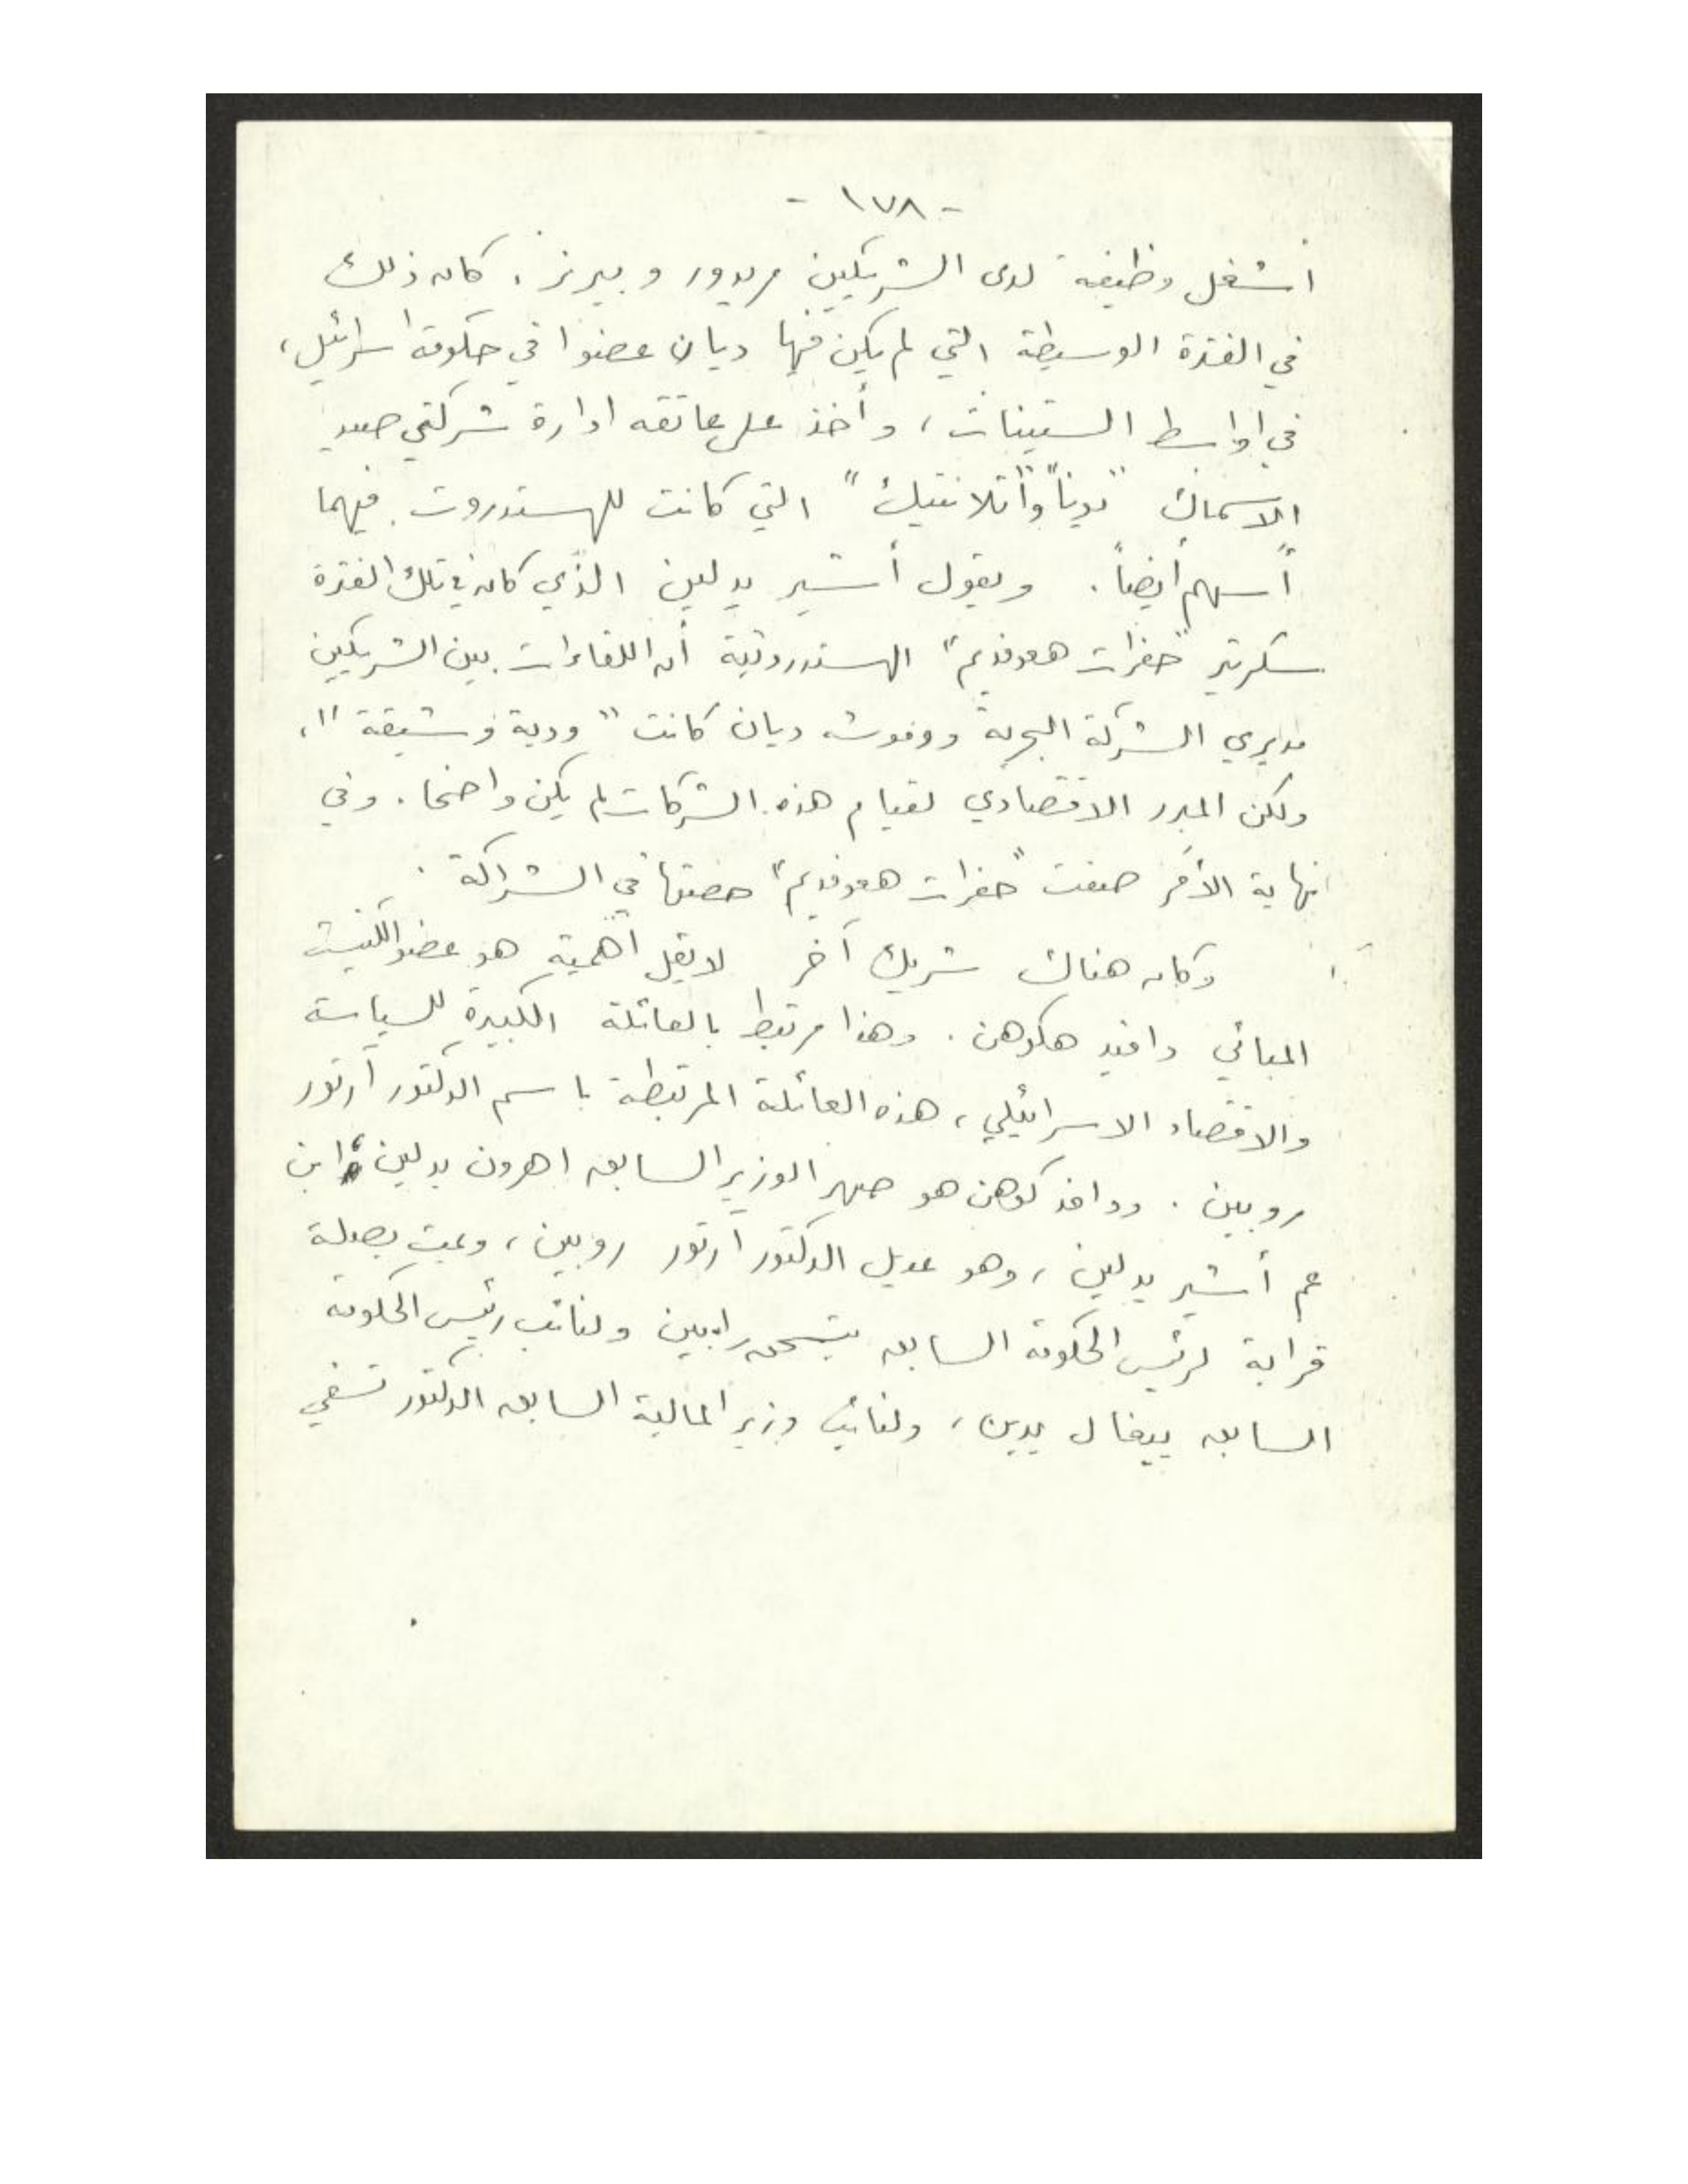 - ١٧٨ -
أشغل وظيفة لدى الشريكين مريدور وبيرنز. كان ذلك
في الفترة الوسيطة التي لم يكن فيها ديان عضوا في حكومة اسرائيل،
في اواسط الستينات، وأخذ على عاتقه ادارة شركتي صيد
الاسماك "يونا" و"أتلانتيك" التي كانت للهستدروت فيهما
أسهم أيضاً. ويقول أشير يدلين الذي كان في تلك الفترة
سكرتير "حفرات هعوفديم" الهستدروتية أن اللقاءات بين الشريكين
مديري الشركة البحرية وموشه ديان كانت "ودية وشيقة"،
ولكن المبرر الاقتصادي لقيام هذه الشركات لم يكن واضحا. وفي
نهاية الأمر صفت "حفرات هعوفديم" حصتها في الشراكة.
وكان هناك شريك آخر لا يقل أهمية هو عضو الكنيست
المبائي دافيد هكوهن. وهذا مرتبط بالعائلة الكبيرة للسياسة
والاقتصاد الاسرائيلي، هذه العائلة المرتبطة باسم الدكتور آرتور
روبين. ودافد كوهن هو صهر الوزير السابق اهرون يدلين، ابن
عم أشير يدلين، وهو عديل الدكتور آرتور روبين، ويمت بصلة
قرابة لرئيس الحكومة السابق يتسحق رابين ولنائب رئيس الحكومة
السابق ييغال يدين، ولنائب وزير المالية السابق الدكتور تسفي